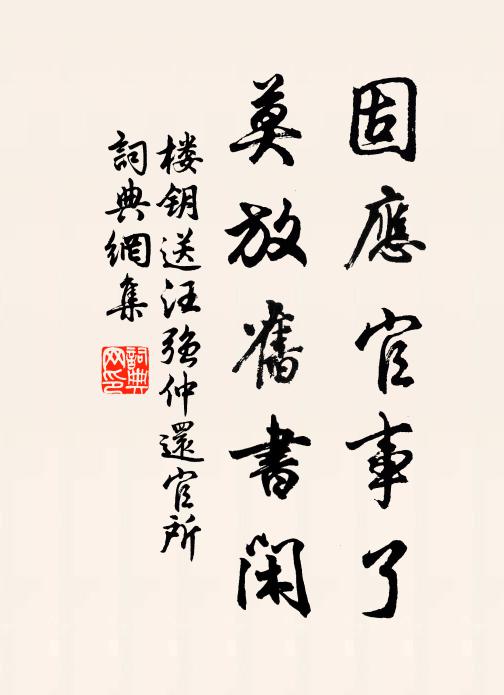 固應官事了
莫放舊書閑
楼钥送汪强仲還官所
詞典網集
詞典网印